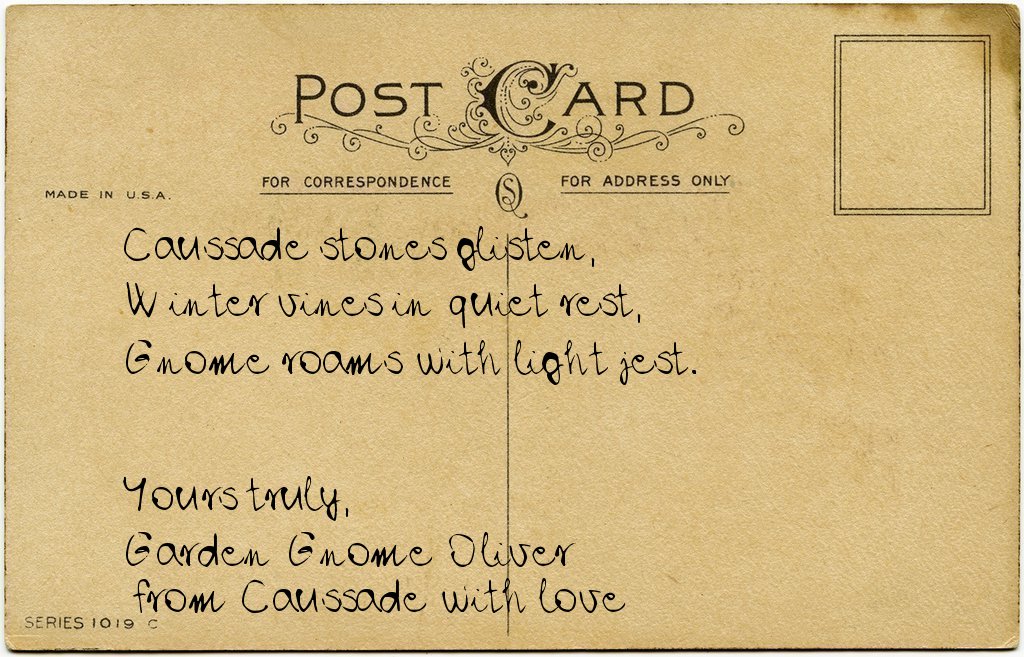 POST CARD
FOR CORRESPONDENCE
FOR ADDRESS ONLY
MADE IN U.S.A.
Caussade stones glisten,
Winter vines in quiet rest,
Gnome roams with light jest.
Yours truly,
Garden Gnome Oliver
from Caussade with love
SERIES 1019 C